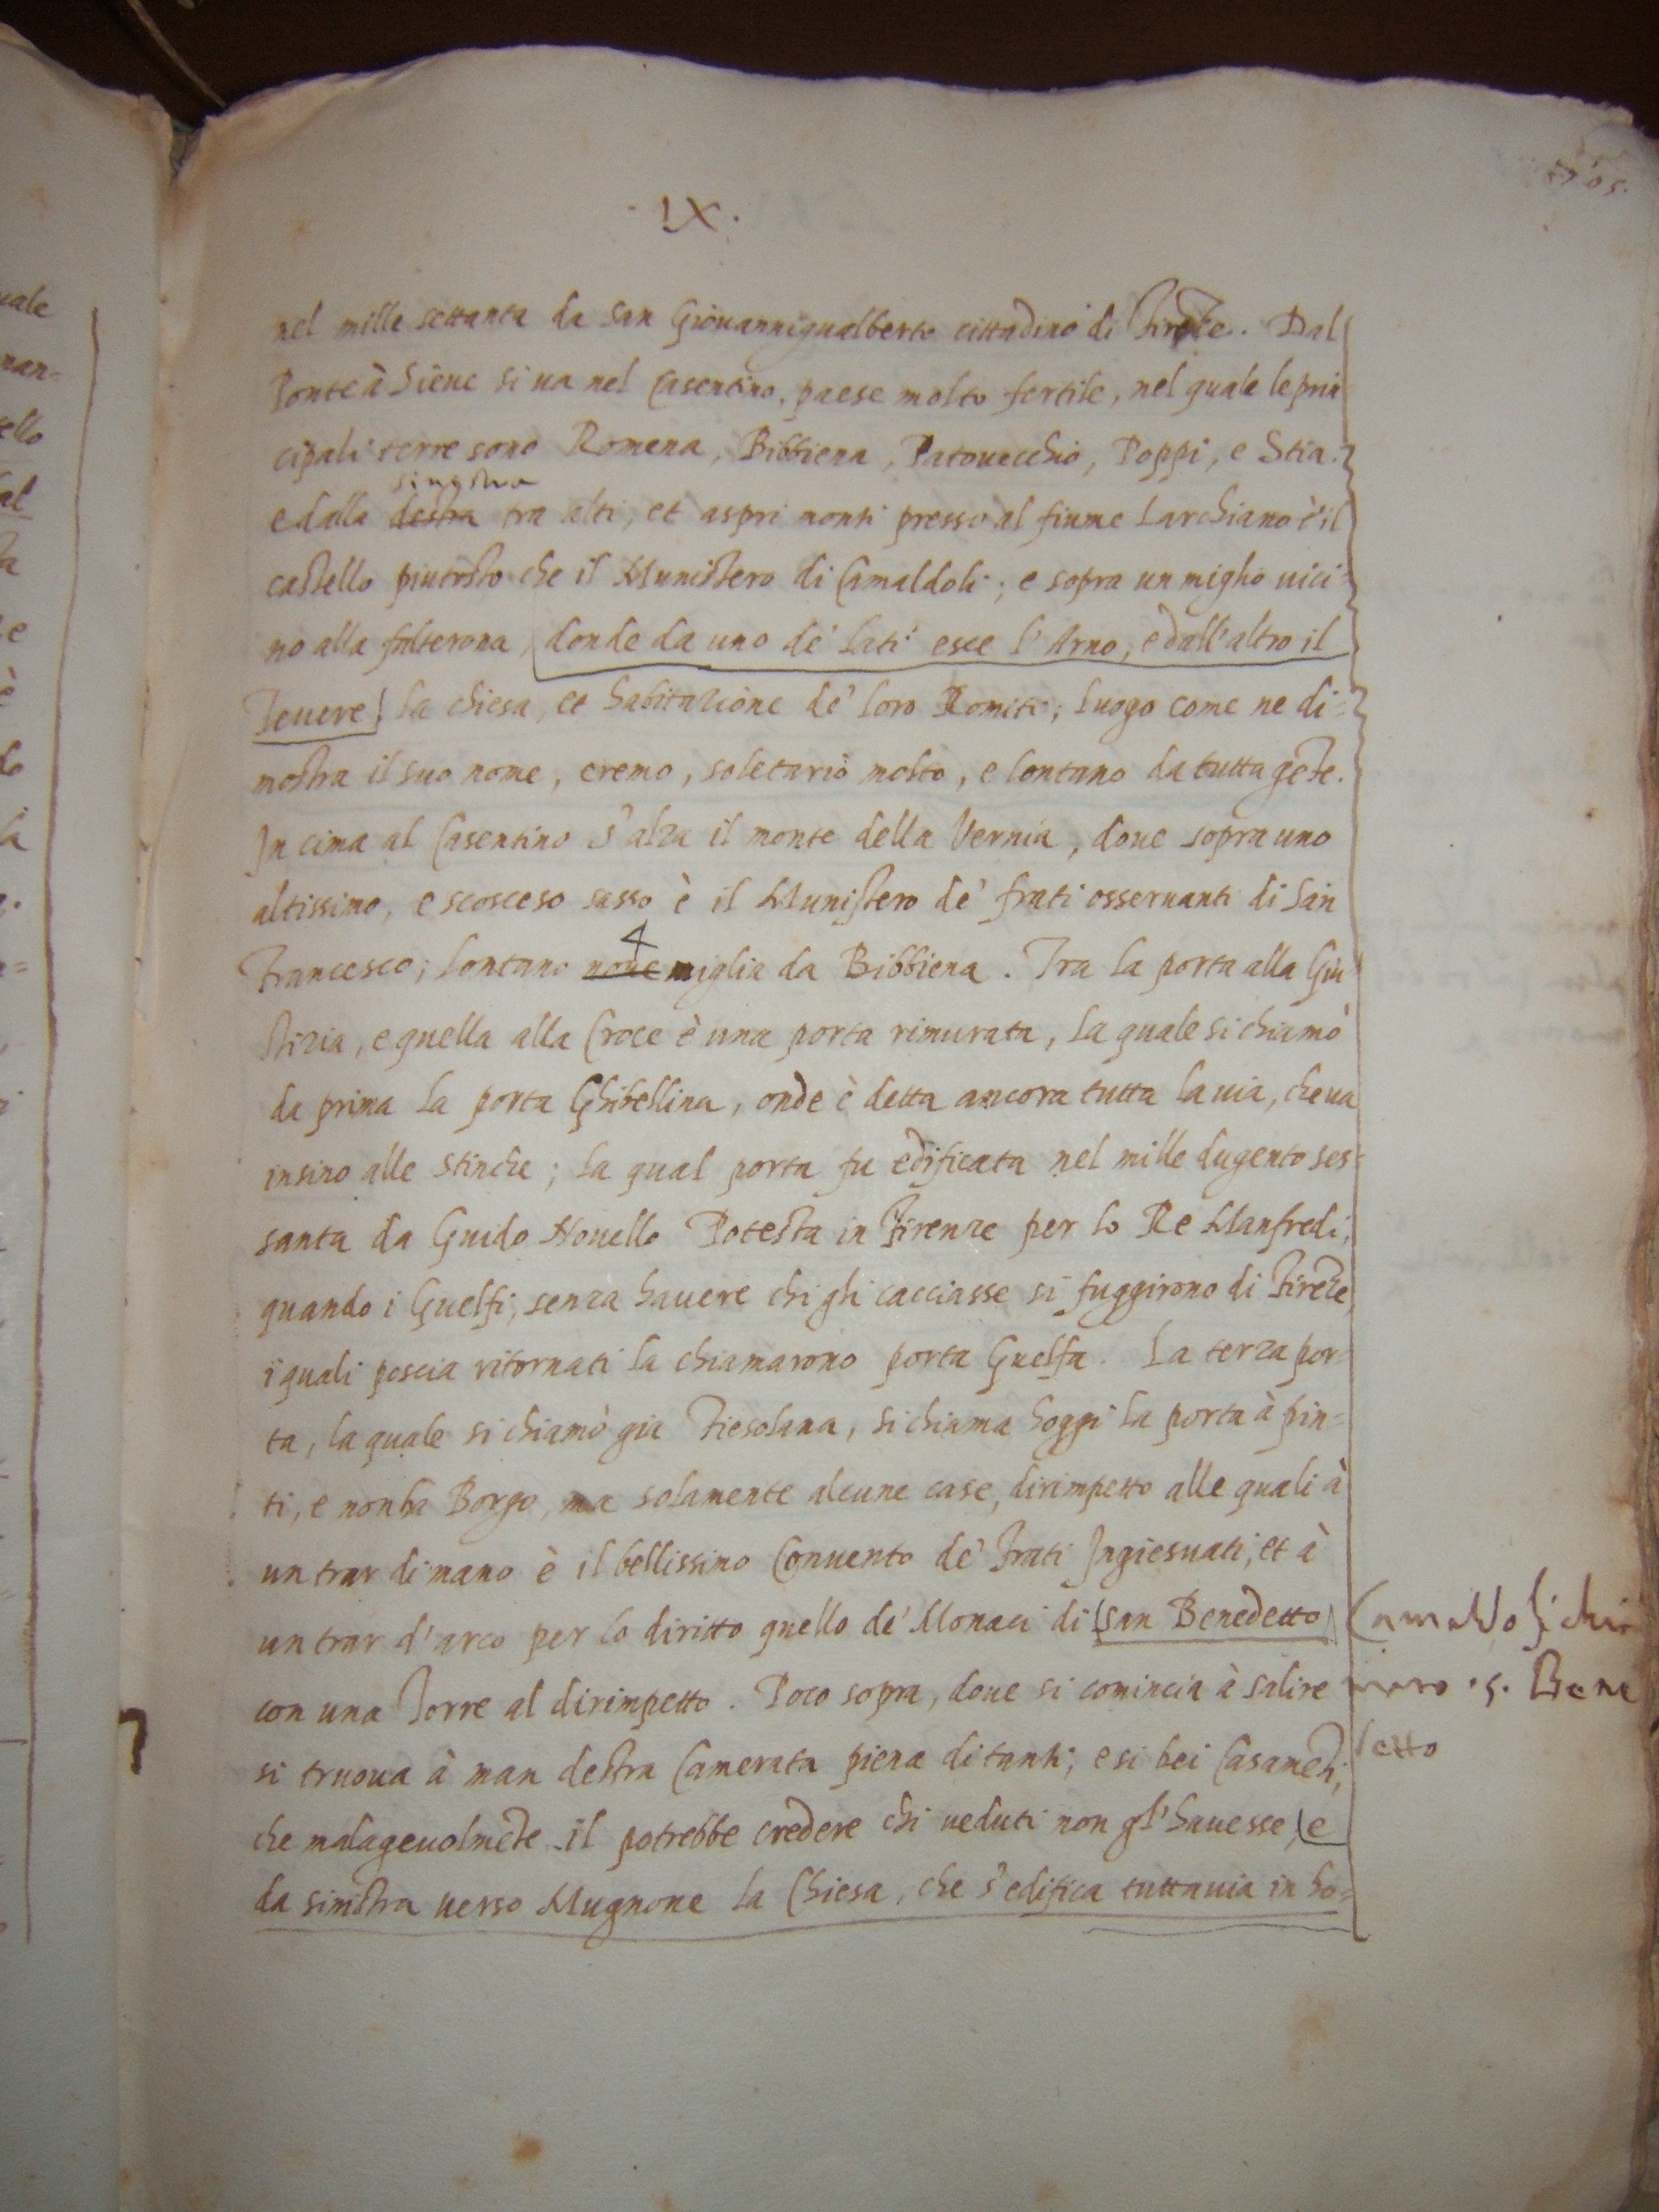 ·IX·
nel mille settanta da San Giouannigualberto cittadino di Firēze. Dal
Ponte à Sieue si ua nel Casentino, paese molto fertile, nel quale le prin
cipali terre sono Romena, Bibbiena, Patouecchio, Poppi, e Stia.
sinistra
e dalla destra tra alti, et aspri monti presso al fiume Larchiano è il
castello piutosto che il Munistero di Camaldoli; e sopra un miglio uici=
no alla falterona, donde da uno de' lati esce l'Arno, e dall'altro il
Teuere, la chiesa, et habitazione de' loro Romiti; luogo come ne di=
mostra il suo nome, eremo, soletario molto, e lontano da tutta gēte.
In cima al Casentino s'alza il monte della Vernia, doue sopra uno
altissimo, e scosceso sasso è il Munistero de' frati osseruanti di San
4
Francesco; lontano noue miglia da Bibbiena. Tra la porta alla Giu
stizia, e quella alla Croce è una porta rimurata, la quale si chiamò
da prima la porta Ghibellina, onde è detta ancora tutta la uia, che ua
insino alle stinche; la qual porta fu edificata nel mille dugento ses=
santa da Guido Nouello Potesta in Firenze per lo Re Manfredi,
quando i Guelfi, senza hauere chi gli cacciasse si fuggirono di Firēze,
i quali poscia ritornati la chiamarono porta Guelfa. La terza por=
ta, la quale si chiamò gia Fiesolana, si chiama hoggi la porta à pin=
ti, e non ha Borgo, ma solamente alcune case, dirimpetto alle quali à
un trar di mano è il bellissimo Conuento de' Frati Ingiesuati, et à
un trar d'arco per lo diritto quello de' Monaci di San Benedetto
con una Torre al dirimpetto. Poco sopra, doue si comincia à salire
si truoua à man destra Camerata piena di tanti, e si bei Casamēti,
che malageuolmēte il potrebbe credere chi ueduti non gl'hauesse, e
da sinistra uerso Mugnone la Chiesa, che s'edifica tuttauia in ho=
Camaldoli
.S. Bene
detto